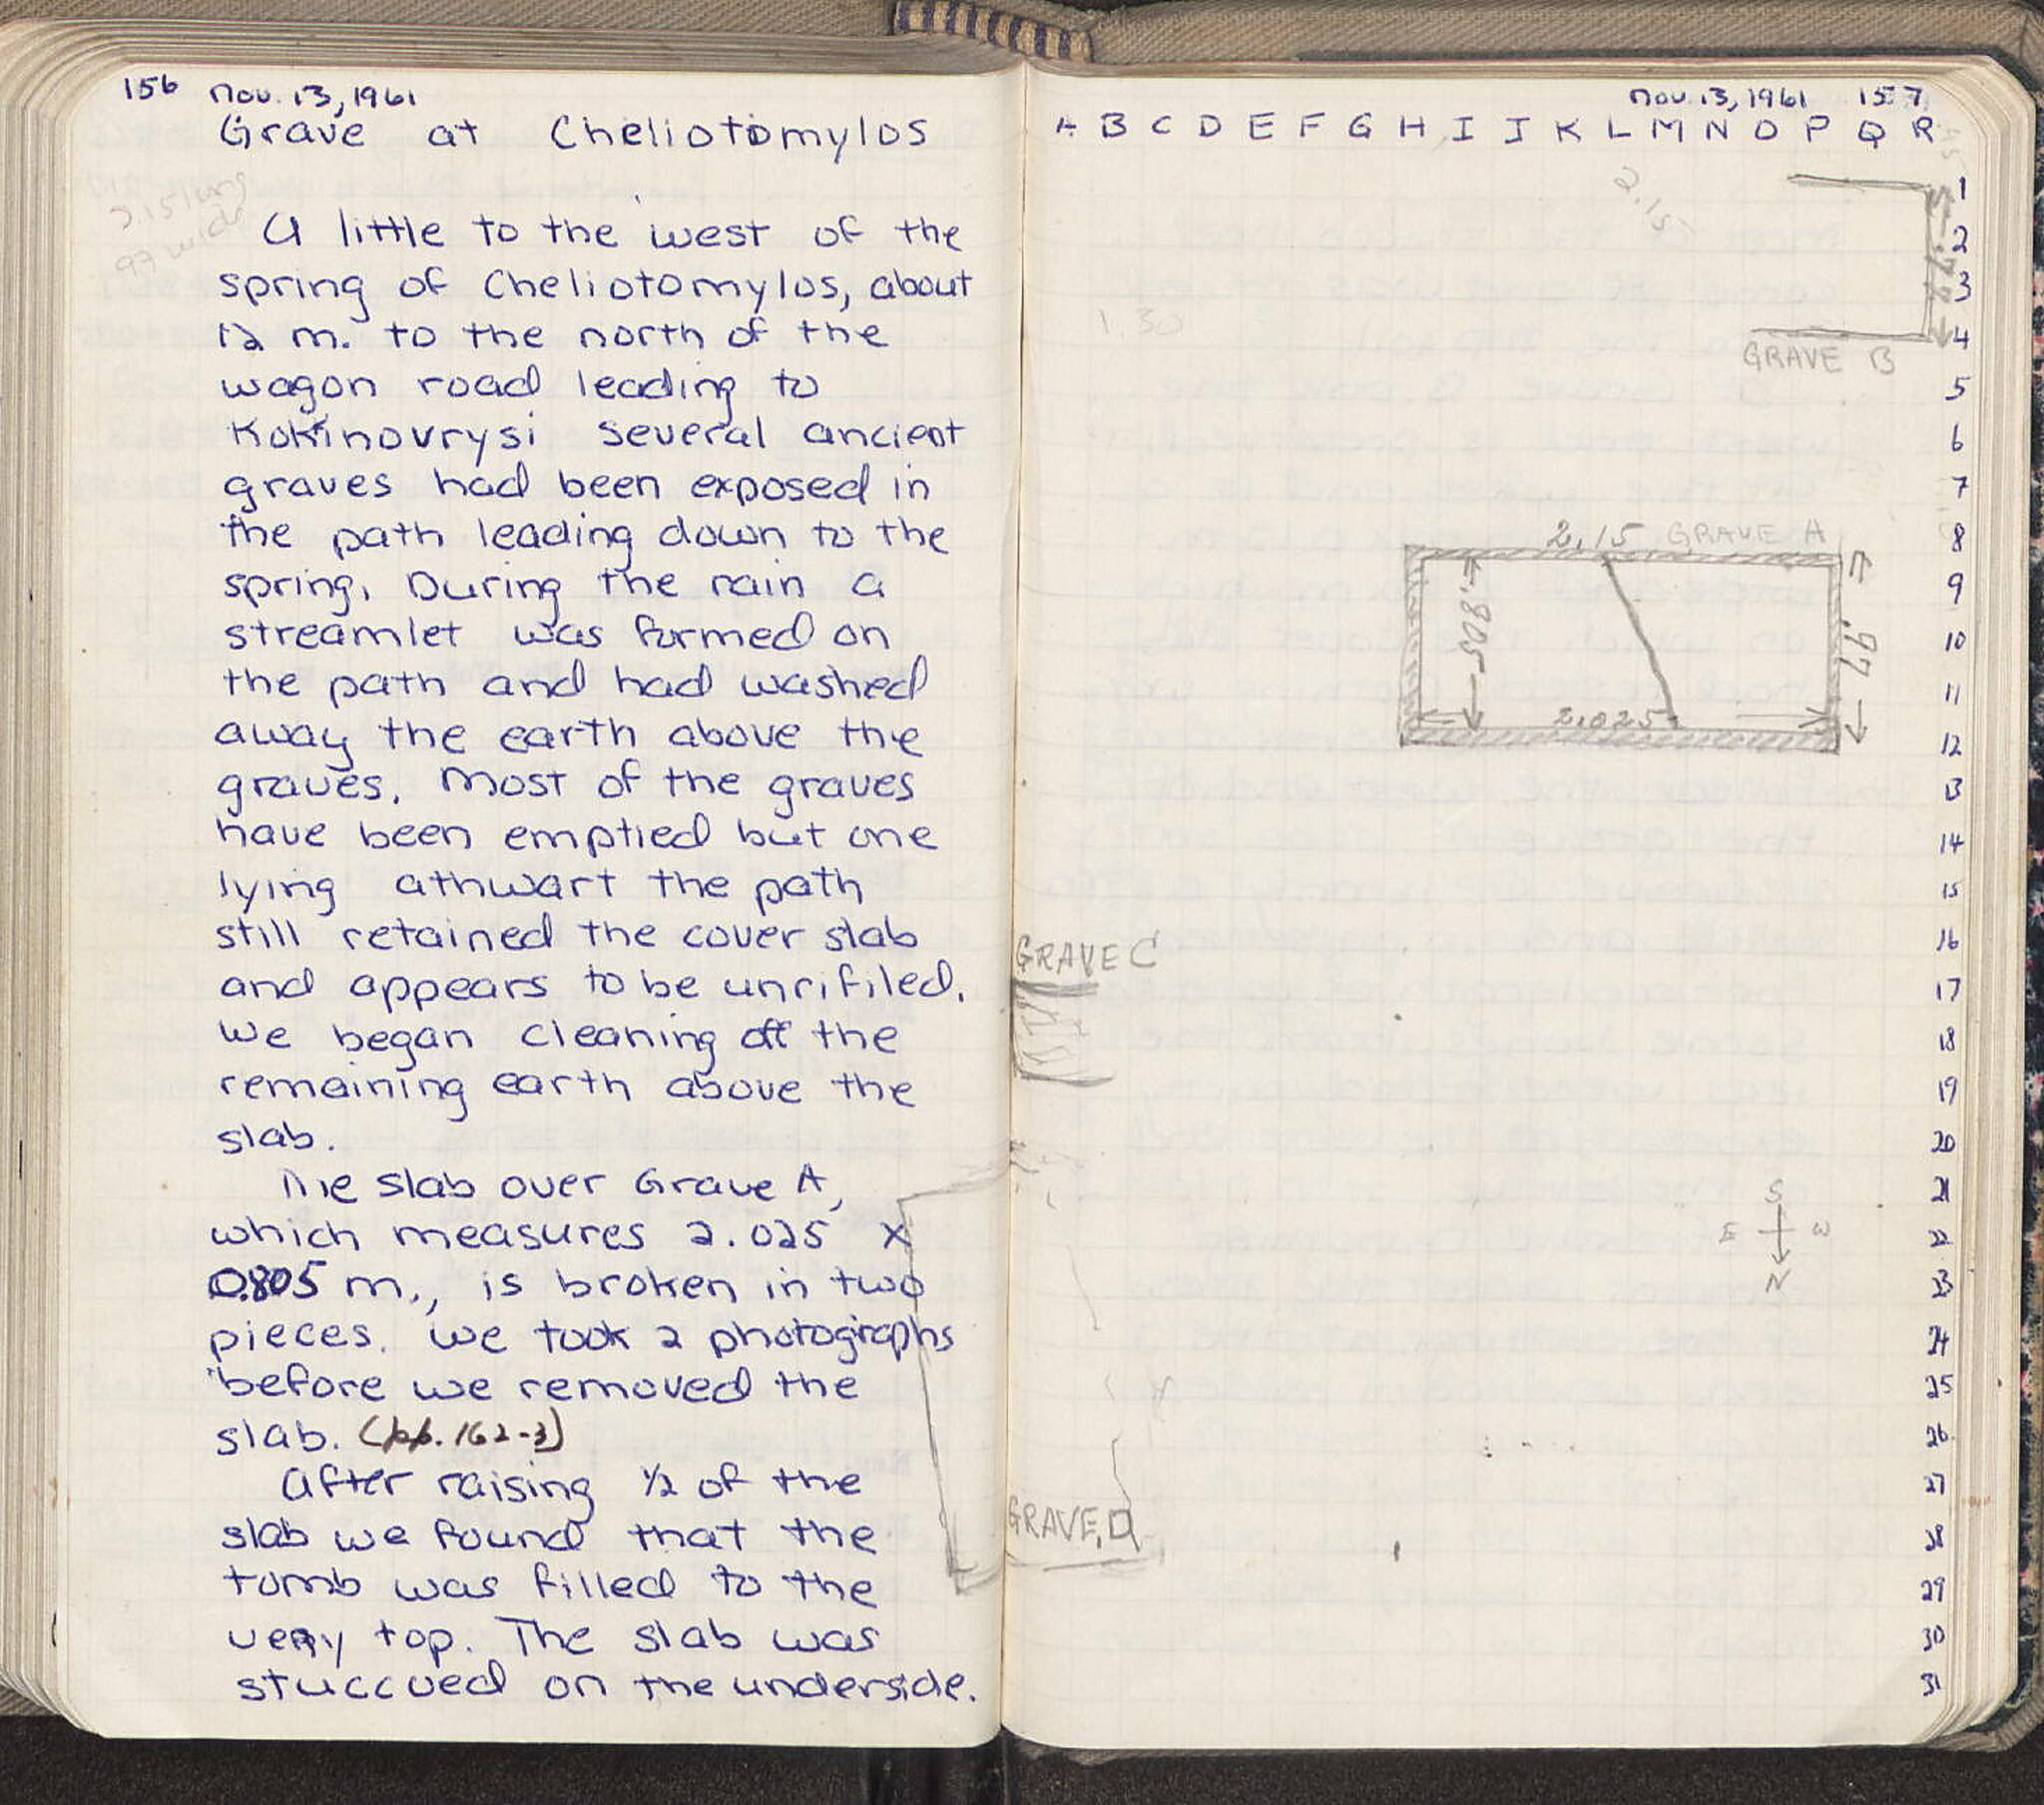 156 Nov. 13, 1961
Grave at Cheliotomylos
2.15 long
97 wide
A little to the west of the
spring of Cheliotomylos, about
12 m. to the north of the
wagon road leading to
Kokinovrysi several ancient
graves had been exposed in
the path leading down to the
spring. During the rain a
streamlet was formed on
the path and had washed
away the earth above the
graves. Most of the graves
have been emptied but one
lying athwart the path
still retained the cover slab
and appears to be unrifiled.
We began cleaning off the
remaining earth above the
slab.
The slab over Grave A,
which measures 2.025 x
0.805 m., is broken in two
pieces. We took 2 photographs
before we removed the
slab. (pp. 162-3)
After raising ½ of the
slab we found that the
tomb was filled to the
very top. The slab was
stuccoed on the underside.
Nov. 13, 1961 157
A B C D E F G H I J K L M N O P Q R
1
2
3
4
5
6
7
8
9
10
11
12
13
14
15
16
17
18
19
20
21
22
23
24
25
26
27
28
29
30
31
2.15
.78
1.30
GRAVE B
2.15 GRAVE A
.805
.97
2.025
GRAVE C
S
E W
N
GRAVE D